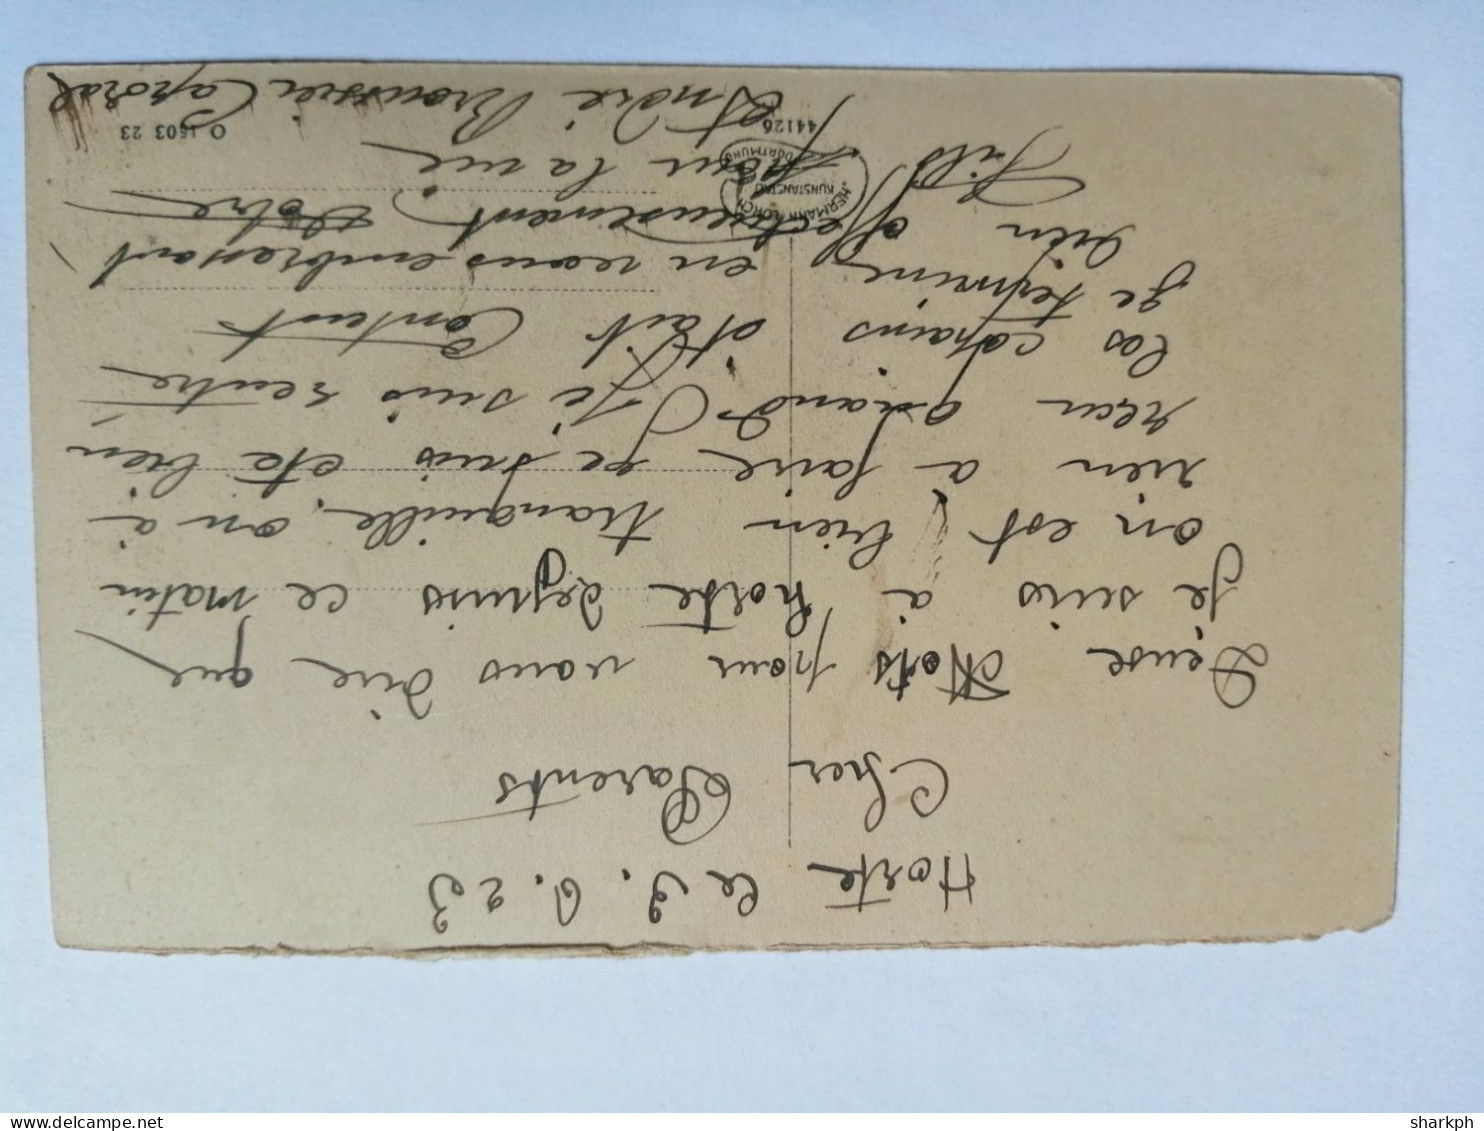 Horte le 3.6.23
Cher Parents
Deuse Mots pour vous dire que
je suis à horte depuis ce matin
on est bien tranquille, on à
rien a faire je suis eté bien
reçu quand je suis rentre
les copains était Content
je termine en vous embrassant
bien affectueusement Votre
Fils pour la vie
André Broussei Caporal
HERMANN LORCH
KUNSTANSTALT
DORTMUND
44126
O 1503 23
delcampe.net
sharkph